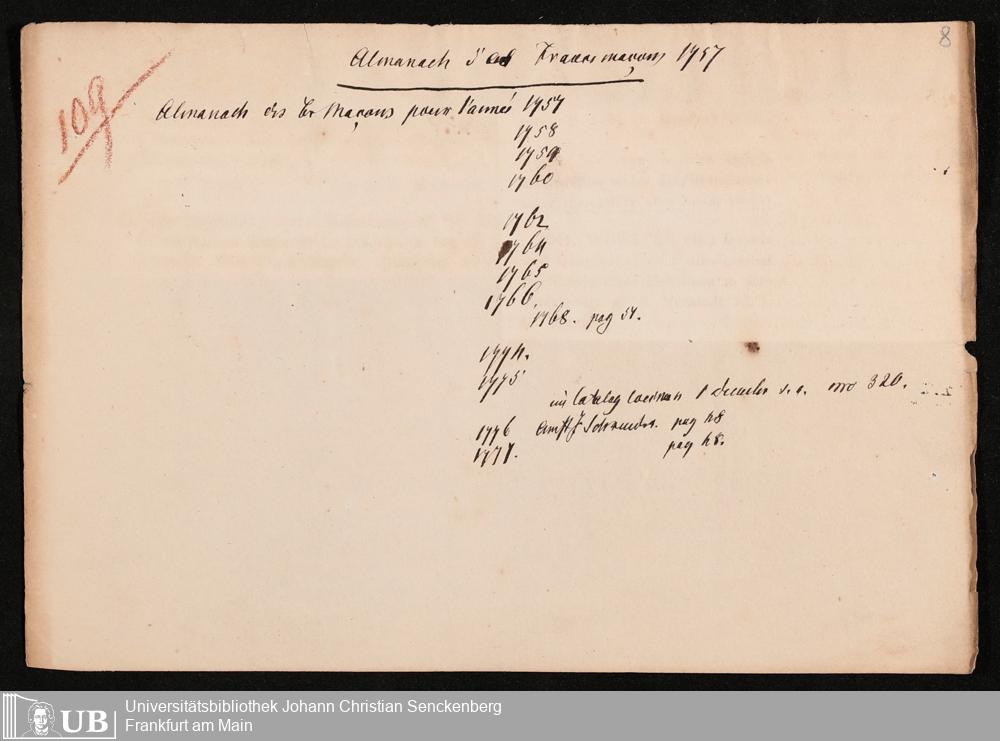 8
109
Almanach des Francs maçons 1757
Almanach des Fr Maçons pour l'année 1757
1758
1759
1760
1762
1764
1765
1766
1768. pag 54.
1774.
1775
im Catalog 1 December no 320.
1776 Amst J Schreuder. pag 48
1777. pag 48.
UB
Universitätsbibliothek Johann Christian Senckenberg
Frankfurt am Main